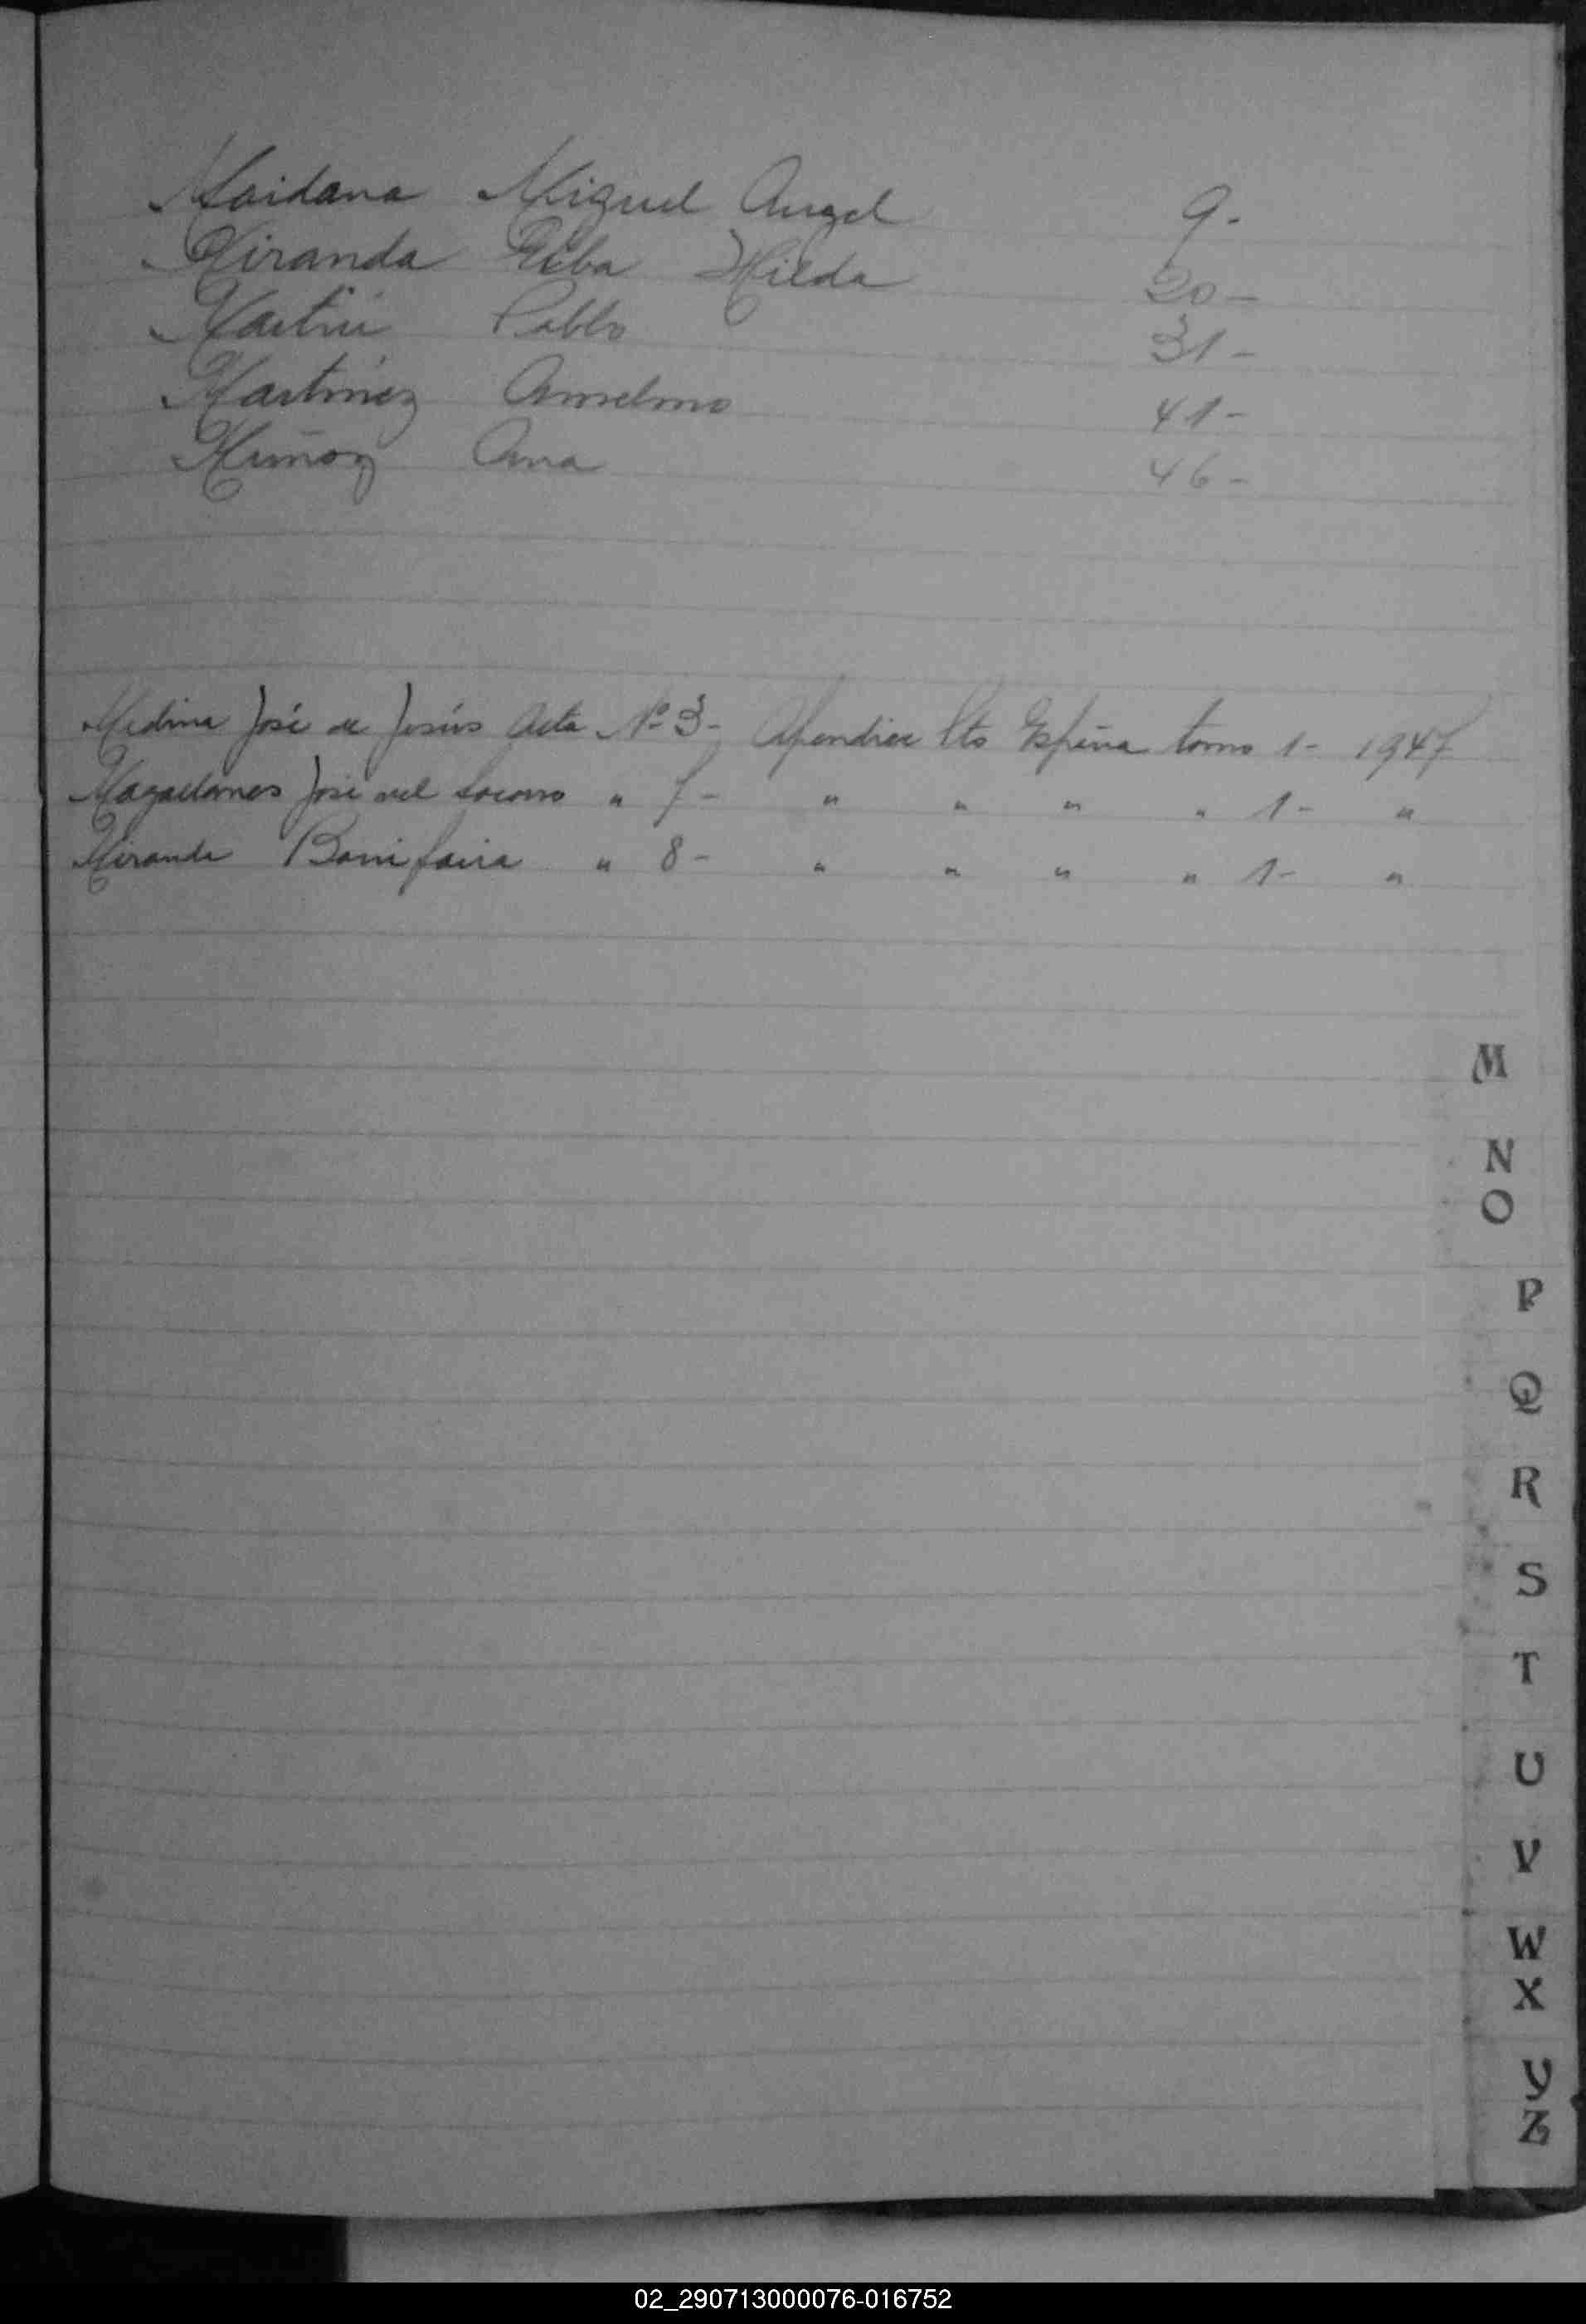 Maidana Miguel Angel 9.-
Miranda Elba Hilda 20-
Martin Pablo 31-
Martinez Anselmo 41-
Muñoz Ana 46-
Medina José de Jesús Acta Nº 3- Apendice Sto Espina tomo 1- 1947
Magallanes José del Socorro " 7- " " " " 1- "
Miranda Bonifacia " 8- " " " " 1- "
M
N
O
P
Q
R
S
T
U
V
W
X
Y
Z
02_290713000076-016752